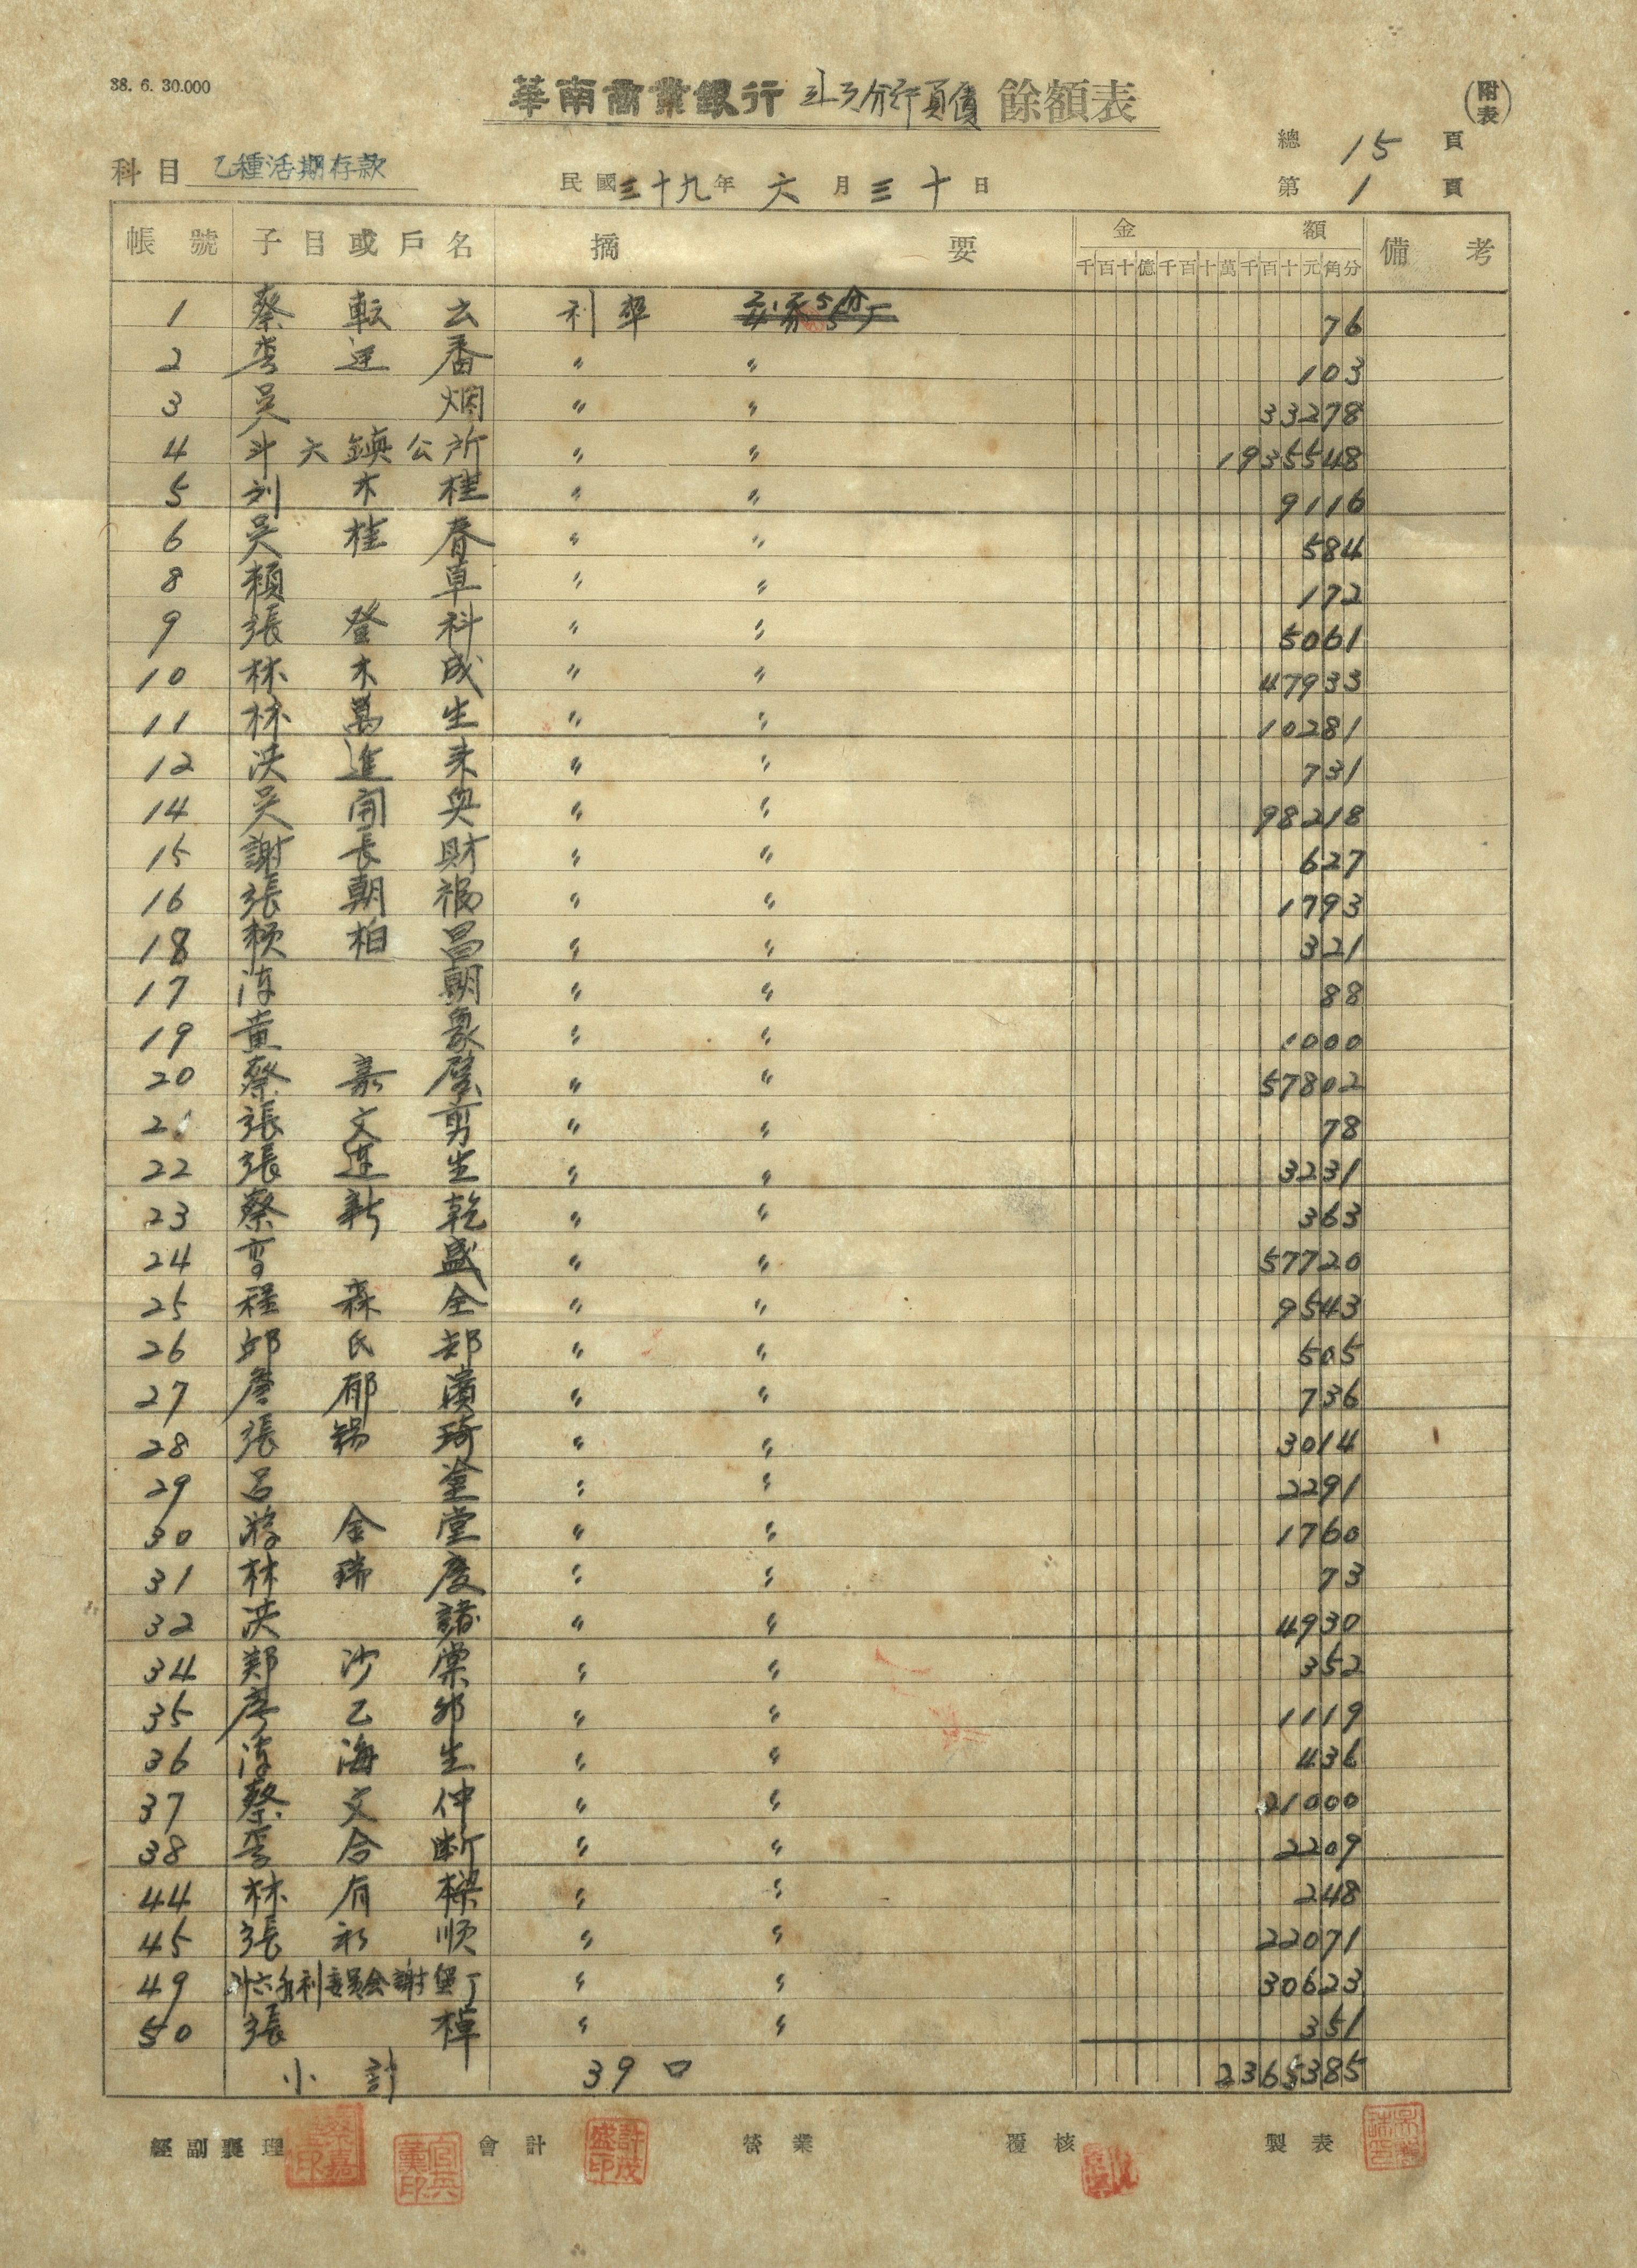 38. 6. 30.000
華南商業銀行 斗六分行負債 餘額表
(附表)
總 15 頁
科目 乙種活期存款
民國三十九年 六月三十日
第 1 頁
帳號 子目或戶名 摘要 金額 備考
千百十億千百十萬千百十元角分
1 蔡 転 去 利率 76
2 李 逆 番 〃 〃 103
3 吳 烟 〃 〃 33278
4 斗六鎮公所 〃 〃 1935548
5 刘 木 桂 〃 〃 9116
6 吳 桂 春 〃 〃 584
8 賴 卓 〃 〃 172
9 張 登 科 〃 〃 5061
10 林 木 成 〃 〃 47933
11 林 萬 生 〃 〃 10281
12 洪 進 来 〃 〃 731
14 吳 開 〃 〃 98218
15 謝 長 財 〃 〃 627
16 張 朝 福 〃 〃 1793
18 賴 柏 昌 〃 〃 321
17 陳 朝 〃 〃 88
19 黄 象 〃 〃 1000
20 蔡 嘉 〃 〃 57802
張 文 剪 〃 〃 78
22 張 進 生 〃 〃 3231
23 蔡 新 乾 〃 〃 363
24 李 盛 〃 〃 57720
25 程 森 全 〃 〃 9543
26 邱 氏 却 〃 〃 505
27 詹 郁 濱 〃 〃 736
28 張 錫 琦 〃 〃 3014
29 呂 塗 〃 〃 2291
30 游 金 堂 〃 〃 1760
31 林 瑞 慶 〃 〃 73
32 洪 諸 〃 〃 4930
34 鄭 沙 棠 〃 〃 352
35 廖 乙 卯 〃 〃 1119
36 陳 海 生 〃 〃 436
37 蔡 文 仲 〃 〃 21000
38 李 合 断 〃 〃 2209
44 林 有 樑 〃 〃 248
45 張 順 〃 〃 22071
49 斗六水利委員会謝 丁 〃 〃 30623
50 張 樟 〃 〃 351
小計 39口 2365385
經副襄理 會計 營業 覆核 製表